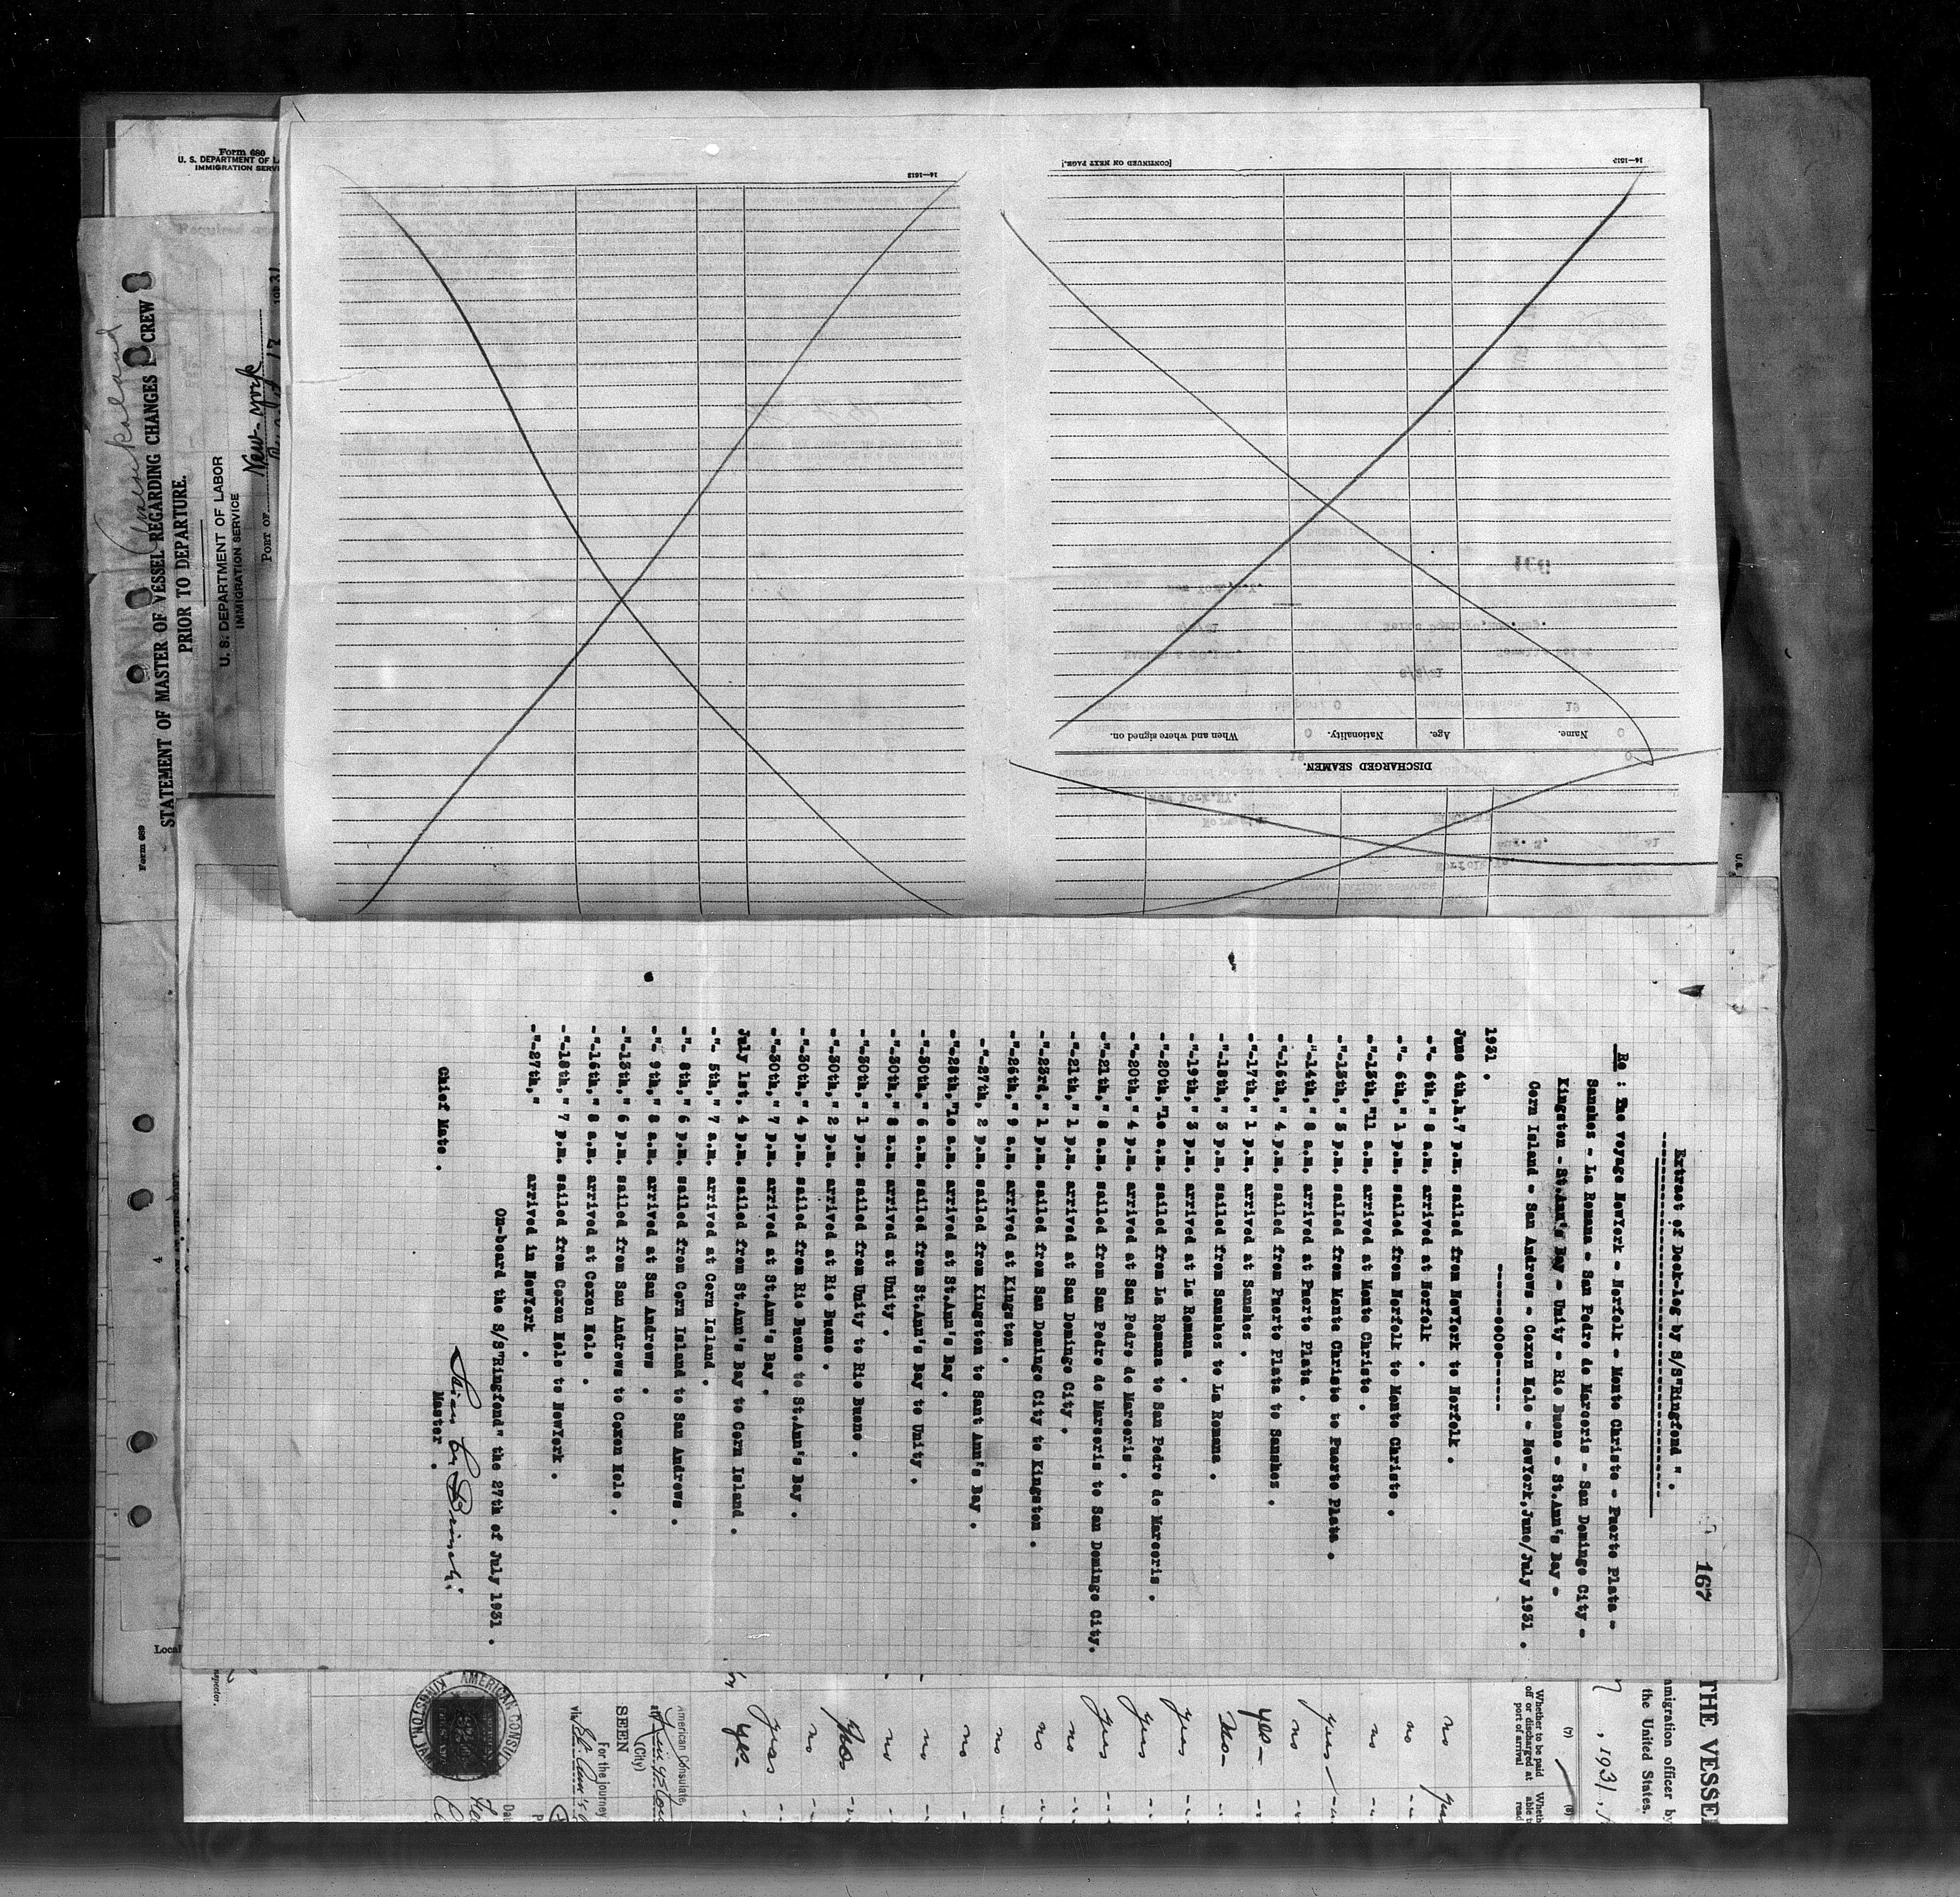 167
Extract of Deck-log by S/S"Ringfond" .
Re : The voyage NewYork - Norfolk - Monte Christo - Puerto Plata -
Sanchez - La Romana - San Pedro de Marcoris - San Domingo City -
Kingston - St.Ann's Bay - Unity - Rio Bueno - St.Ann's Bay -
Corn Island - San Andrews - Coxen Hole - NewYork,June/July 1931 .
------ooOoo------
1931 .
June 4th,h.7 p.m. sailed from NewYork to Norfolk .
-"- 6th," 8 a.m. arrived at Norfolk .
-"- 6th," 1 p.m. sailed from Norfolk to Monte Christo .
-"-13th,"11 a.m. arrived at Monte Christo .
-"-13th," 3 p.m. sailed from Monte Christo to Puerto Plata .
-"-14th," 8 a.m. arrived at Puerto Plata .
-"-16th," 4 p.m. sailed from Puerto Plata to Sanchez .
-"-17th," 1 p.m. arrived at Sanchez .
-"-18th," 3 p.m. sailed from Sanchez to La Romana .
-"-19th," 3 p.m. arrived at La Romana .
-"-20th,"1o a.m. sailed from La Romana to San Pedro de Marcoris .
-"-20th," 4 p.m. arrived at San Pedro de Marcoris .
-"-21th," 8 a.m. sailed from San Pedro de Marcoris to San Domingo City.
-"-21th," 1 p.m. arrived at San Domingo City .
-"-23rd," 1 p.m. sailed from San Domingo City to Kingston .
-"-26th," 9 a.m. arrived at Kingston .
-"-27th, 2 p.m. sailed from Kingston to Sant Ann's Bay .
-"-28th,"1o a.m. arrived at St.Ann's Bay .
-"-30th," 6 a.m. sailed from St.Ann's Bay to Unity .
-"-30th," 8 a.m. arrived at Unity .
-"-30th," 1 p.m. sailed from Unity to Rio Bueno .
-"-30th," 2 p.m. arrived at Rio Bueno .
-"-30th," 4 p.m. sailed from Rio Bueno to St.Ann's Bay .
-"-30th," 7 p.m. arrived at St.Ann's Bay .
July 1st, 4 p.m. sailed from St.Ann's Bay to Corn Island .
-"- 5th," 7 a.m. arrived at Corn Island .
-"- 8th," 6 p.m. sailed from Corn Island to San Andrews .
-"- 9th," 8 a.m. arrived at San Andrews .
-"-13th," 6 p.m. sailed from San Andrews to Coxen Hole .
-"-16th," 8 a.m. arrived at Coxen Hole .
-"-18th," 7 p.m. sailed from Coxen Hole to NewYork .
-"-27th," arrived in NewYork .
On-board the S/S"Ringfond" the 27th of July 1931 .
Chief Mate .
Master .
14-1513
[CONTINUED ON NEXT PAGE.]
DISCHARGED SEAMEN.
Name.
Age.
Nationality.
When and where signed on.
14-1513
Form 680
U. S. DEPARTMENT OF LA
IMMIGRATION SERV
STATEMENT OF MASTER OF VESSEL REGARDING CHANGES CREW
PRIOR TO DEPARTURE.
U. S. DEPARTMENT OF LABOR
IMMIGRATION SERVICE
PORT OF New-York
Form 689
Local
U.S.
THE VESSEL
mmigration officer by
the United States.
, 1931,
(7)
(8)
Whether to be paid
off or discharged at
port of arrival
Wheth
able t
read
no
yes
no
no
yes
no
yes
no
yes
yes
yes
no
no
no
no
no
no
no
no
yes
yes
American Consulate,
at Kingston
(City)
SEEN
For the journey
via St. Ann's
AMERICAN CONSUL
KINGSTON, JAM
Inspector.